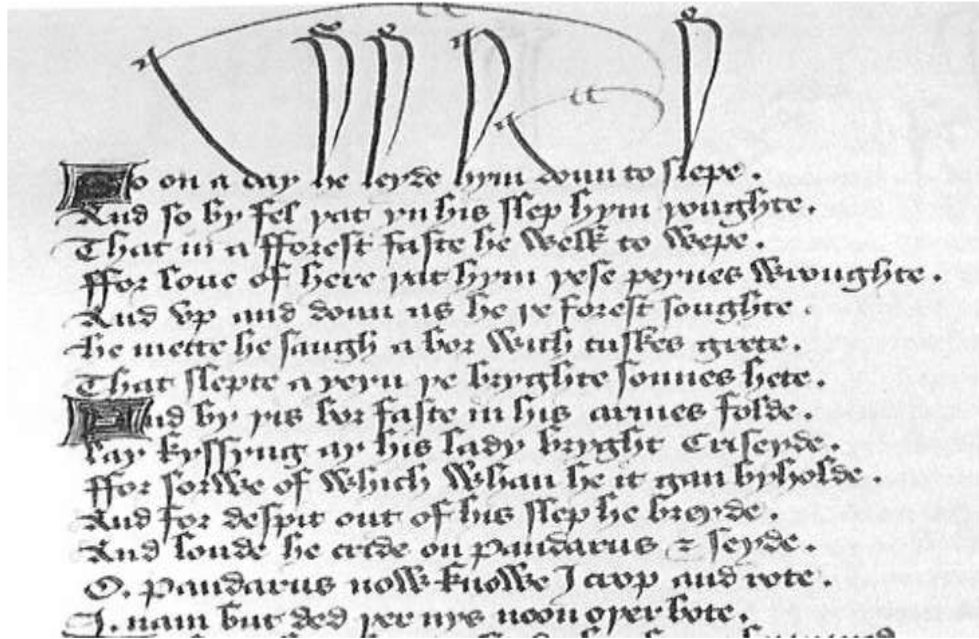 So on a day he leyde hym doun to slepe .
And so by fel yat yn his slep hym youghte .
That in a fforest faste he welk to wepe .
ffor loue of here yat hym yese peynes wroughte .
And vp and doun as he ye forest soughte .
he mette he saugh a bor with tuskes grete .
That slepte a yeyn ye bryghte sonnes hete .
And by yis bor faste in his armes folde .
lay kyssyng ay his lady bryght Criseyde .
ffor sorwe of which whan he it gan byholde .
And for despit out of his slep he breyde .
And loude he cride on pandarus & seyde .
O . pandarus now knowe I crop and rote .
I . nam but ded yer nys noon oyer bote .